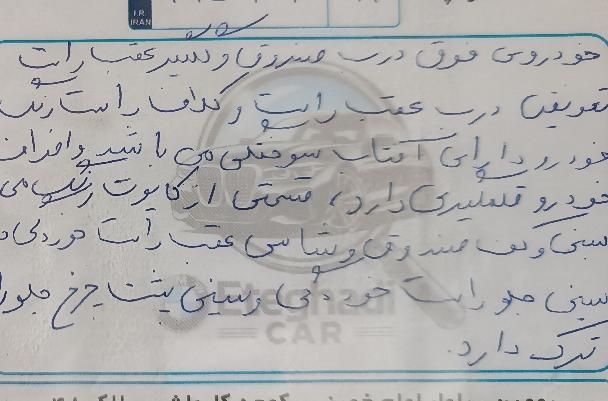 I.R.
IRAN
خودروی فوق درب صندوق و گلگیر عقب راست
تعویض درب عقب راست و گلاف راست رنگ
خودرو دارای آفتاب سوختگی می باشد و اطراف
خودرو قلمگیری دارد، قسمتی از کاپوت رنگ می
سینی و کف صندوق و شاسی عقب راست خوردگی د
سینی جلو راست خوردگی و سینی پشت چرخ جلو را
ترک دارد.
Etemadi
CAR